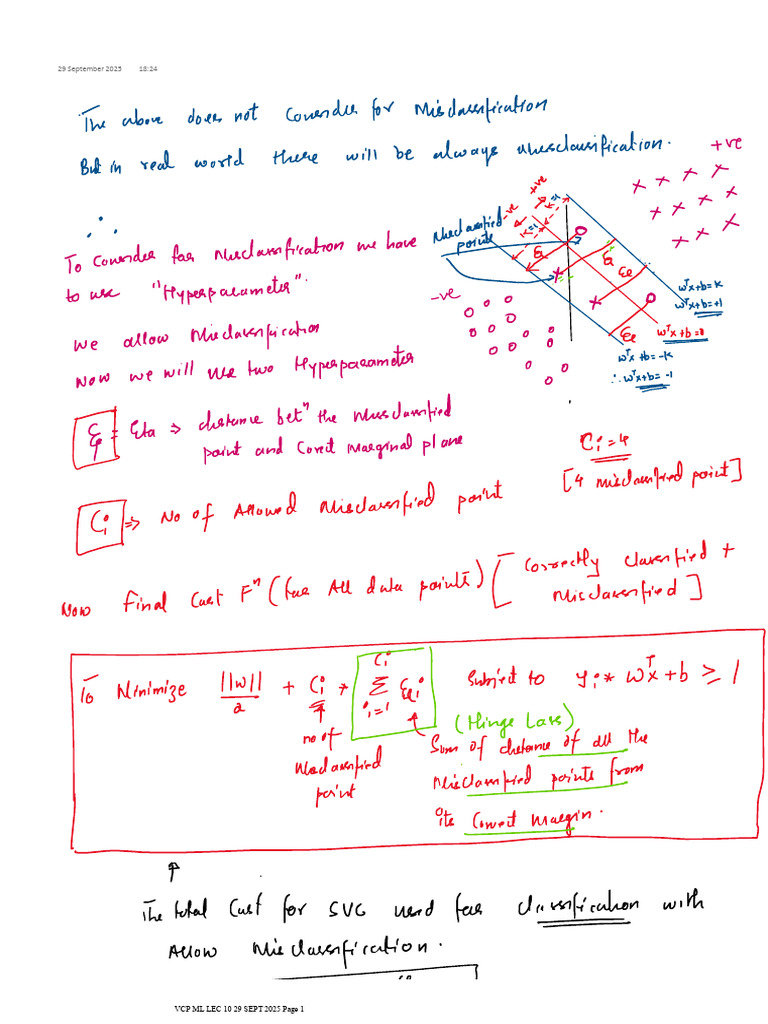 29 September 2025 18:24
The above does not Consider for Misclassification
But in real world there will be always misclassification.
+ve
∴
+ve
-ve
Misclassified
points
To Consider for Misclassification we have
to use "Hyperparameter".
-ve
wᵀx+b=k
wᵀx+b=+1
wᵀx+b=0
wᵀx+b=-k
∴ wᵀx+b=-1
We allow Misclassification
Now we will use two Hyperparameter
Eta ⇒ distance betⁿ the Misclassified
point and Correct Marginal plane
Ci=4
[4 misclassified point]
Ci ⇒ No of Allowed Misclassified point
Now Final Cost Fⁿ (for All data points) [Correctly classified +
Misclassified]
To Minimize ||w||/2 + Ci * Σ i=1 Ci ξi Subject to yi * wᵀx+b ≥ 1
(Hinge Loss)
no of
Misclassified
point
Sum of distance of all the
Misclassified points from
its Correct Margin.
↑
The total Cost for SVC used for classification with
Allow Misclassification.
VCP ML LEC 10 29 SEPT 2025 Page 1